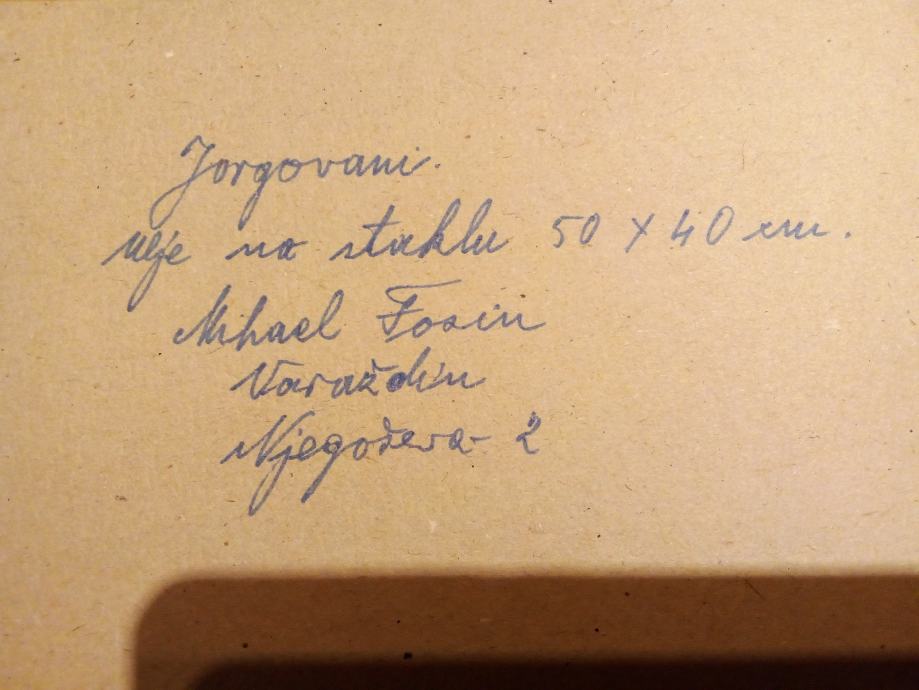 Jorgovani.
ulje na staklu 50 x 40 cm.
Mihael Fosin
Varaždin
Njegoševa 2